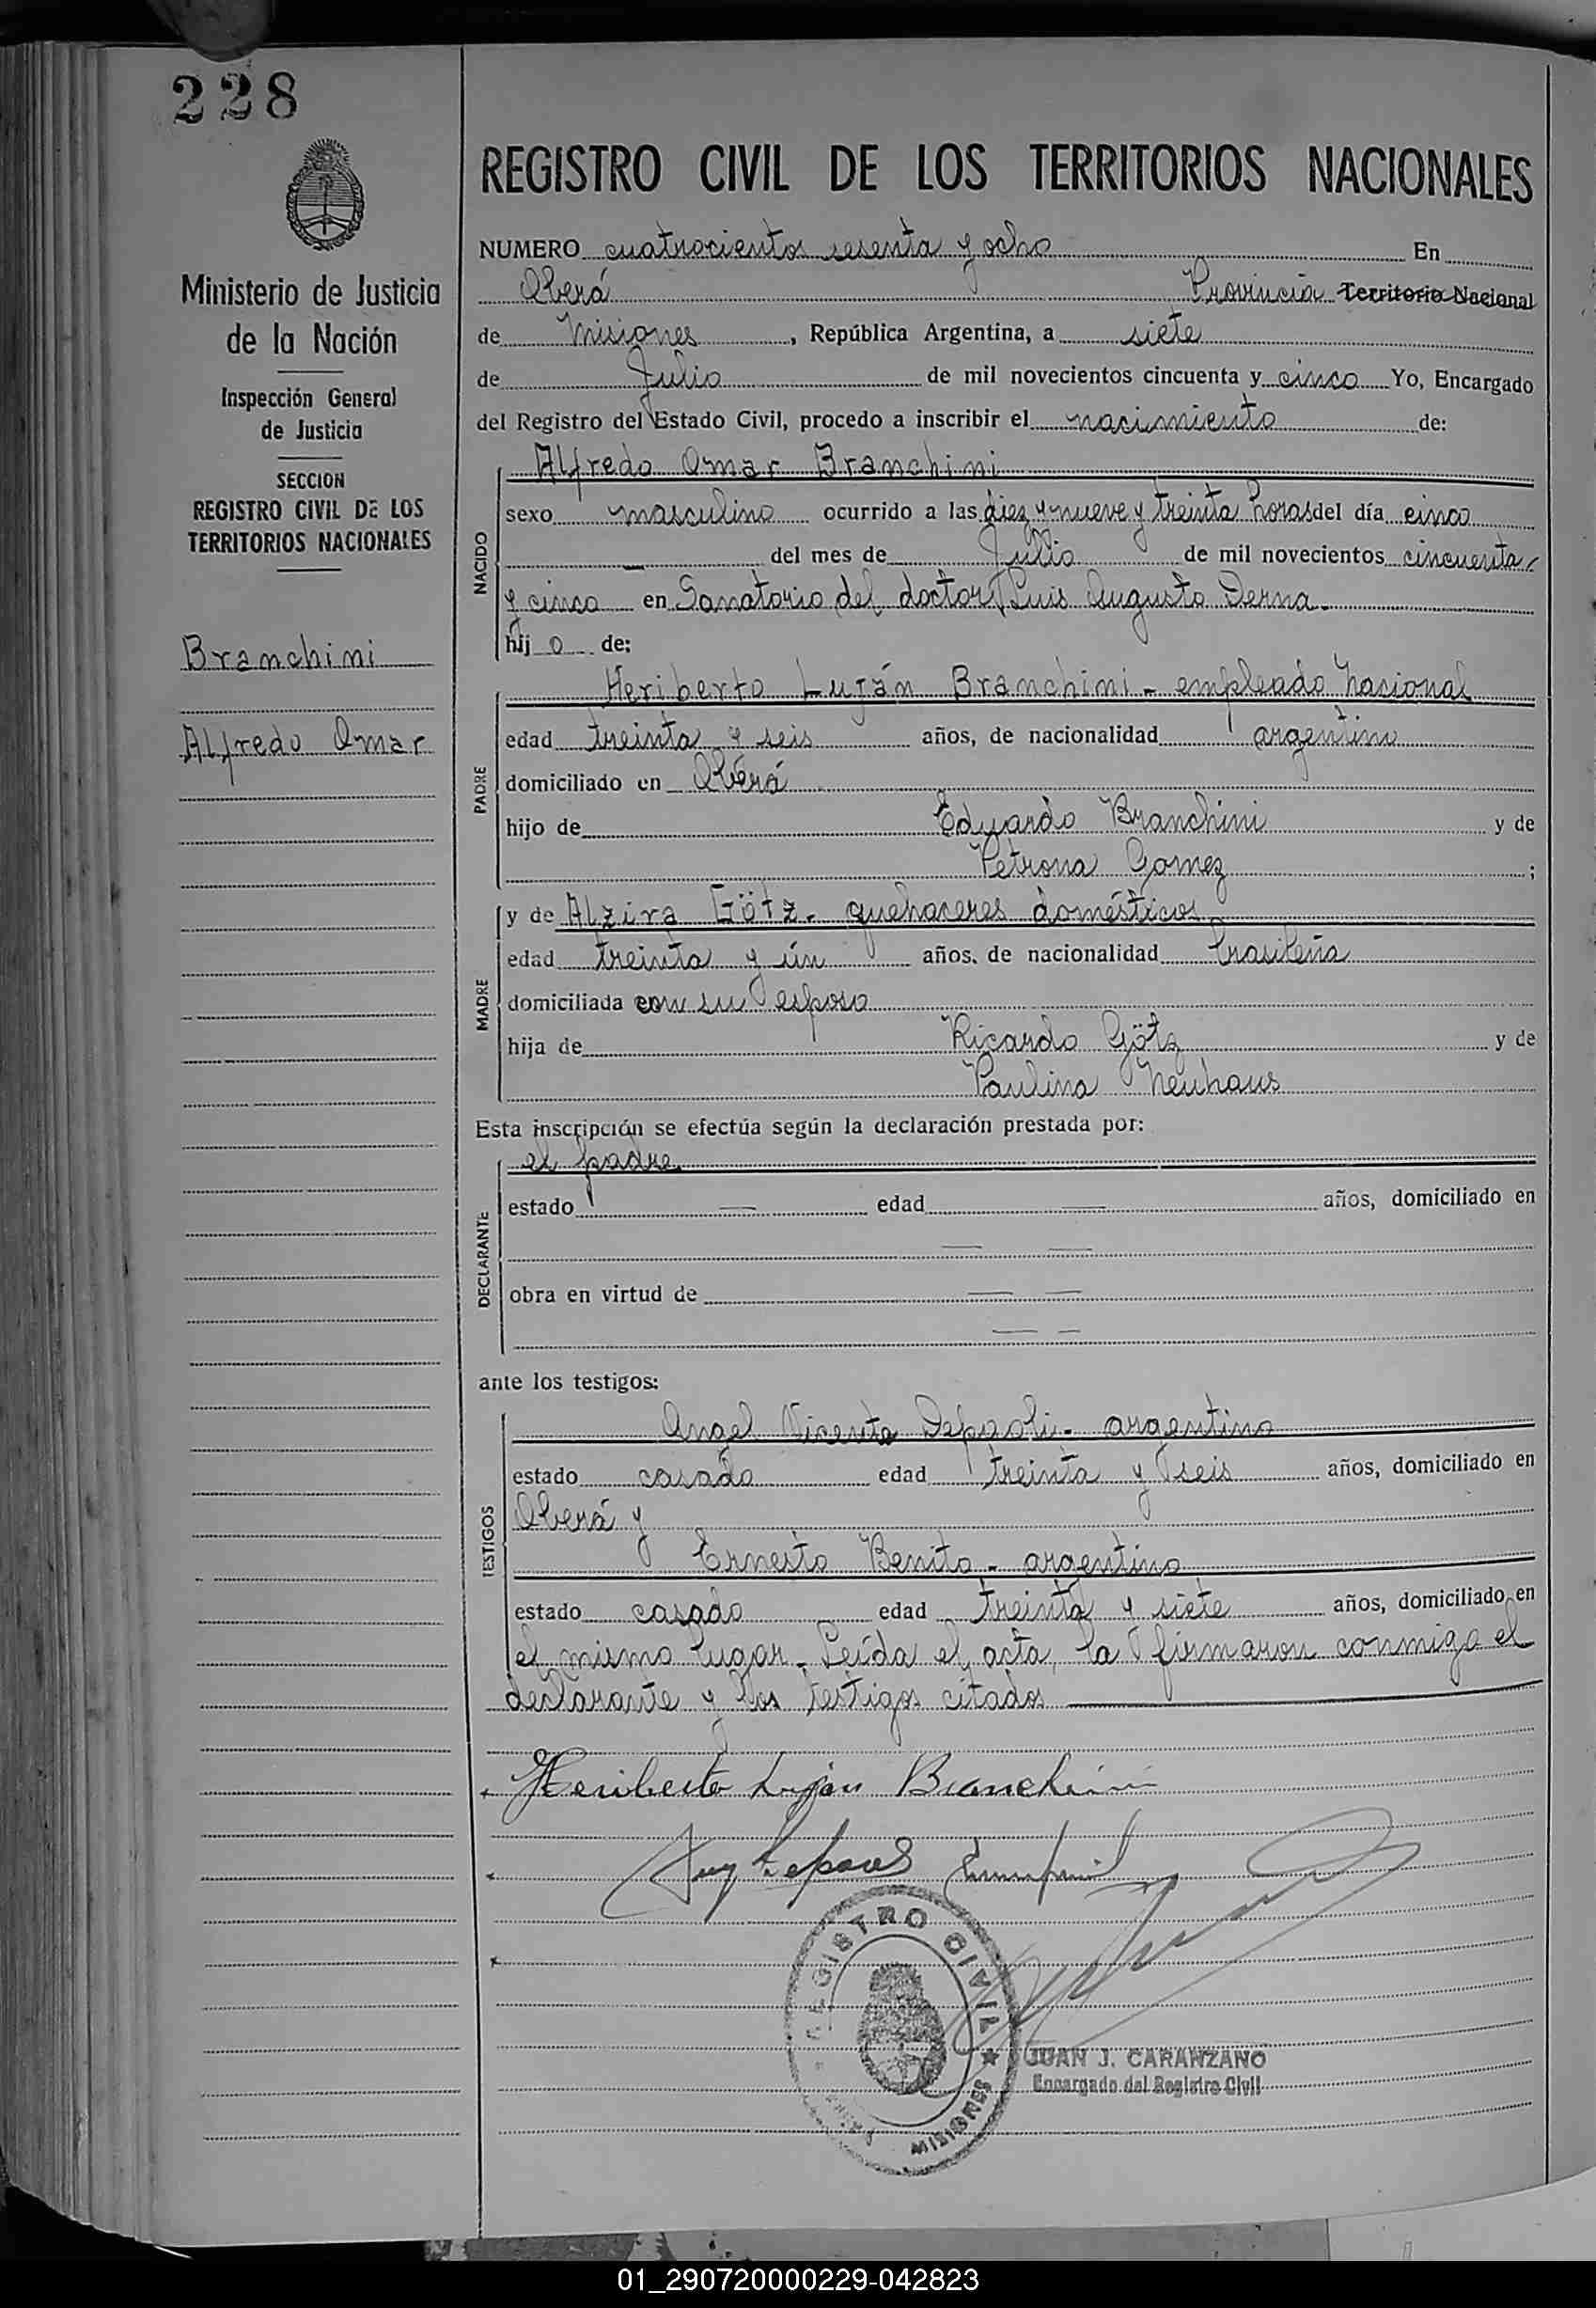 228
Ministerio de Justicia
de la Nación
Inspección General
de Justicia
SECCION
REGISTRO CIVIL DE LOS
TERRITORIOS NACIONALES
Branchini
Alfredo Omar
REGISTRO CIVIL DE LOS TERRITORIOS NACIONALES
NUMERO cuatrocientos sesenta y ocho En
Oberá Provincia Territorio Nacional
de Misiones, República Argentina, a siete
de Julio de mil novecientos cincuenta y cinco Yo, Encargado
del Registro del Estado Civil, procedo a inscribir el nacimiento de:
Alfredo Omar Branchini
NACIDO
sexo masculino ocurrido a las diez y nueve y treinta horas del día cinco
— del mes de Julio de mil novecientos cincuenta
y cinco en Sanatorio del doctor Luis Augusto Derna.
hij o de:
Heriberto Luján Branchini - empleado nacional
PADRE
edad treinta y seis años, de nacionalidad argentino
domiciliado en Oberá
hijo de Eduardo Branchini y de
Petrona Gomez ;
y de Alzira Götz - quehaceres domésticos
MADRE
edad treinta y ún años, de nacionalidad brasileña
domiciliada con su esposo
hija de Ricardo Götz y de
Paulina Neuhaus
Esta inscripción se efectúa según la declaración prestada por:
el padre
DECLARANTE
estado — edad — años, domiciliado en
— —
obra en virtud de — —
— —
ante los testigos:
Angel Vicente Depaoli - argentino
TESTIGOS
estado casado edad treinta y seis años, domiciliado en
Oberá y
Ernesto Benito - argentino
estado casado edad treinta y siete años, domiciliado en
el mismo lugar. Leída el acta, la firmaron conmigo el
declarante y los testigos citados
Heriberto Luján Branchini
REGISTRO CIVIL
MISIONES
JUAN J. CARANZANO
Encargado del Registro Civil
01_290720000229-042823